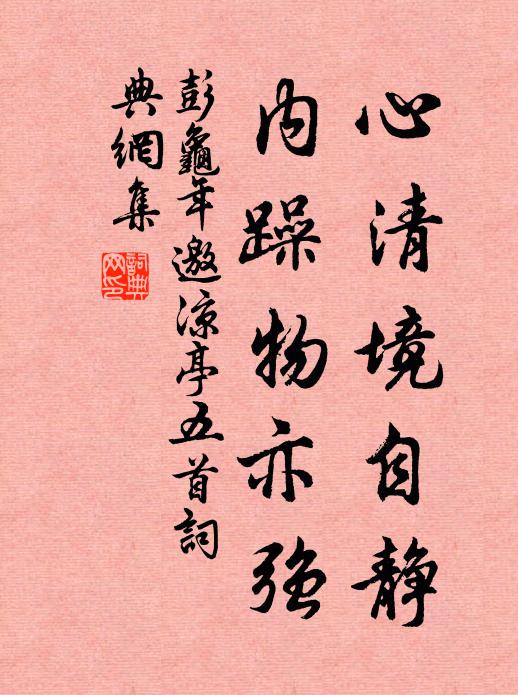 心清境自静
内躁物亦强
彭龜年邀凉亭五首詞
典網集
詞典
网印